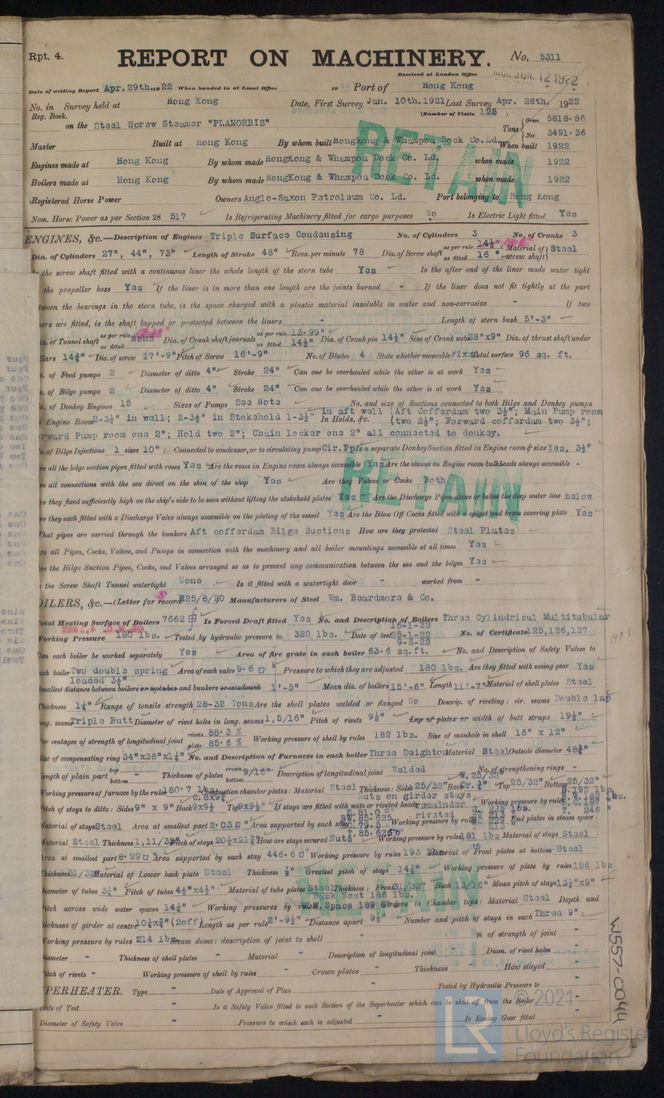 Rpt. 4.
REPORT ON MACHINERY.
No. 5311
Received at London Office MON. JUN. 12 1922
Date of writing Report Apr. 29th. 1922 When handed in at Local Office 19 Port of Hong Kong
No. in Survey held at Hong Kong Date, First Survey Jan. 10th. 1921 Last Survey Apr. 28th. 1922
Reg. Book. (Number of Visits 128
on the Steel Screw Steamer "PLANORBIS" Tons Gross 5818.86 Net 3491.36
Master Built at Hong Kong By whom built Hongkong & Whampoa Dock Co. Ld. When built 1922
Engines made at Hong Kong By whom made Hongkong & Whampoa Dock Co. Ld. when made 1922
Boilers made at Hong Kong By whom made HongKong & Whampoa Dock Co. Ld. when made 1922
Registered Horse Power Owners Anglo-Saxon Petroleum Co. Ld. Port belonging to Hong Kong
Nom. Horse Power as per Section 28 517 Is Refrigerating Machinery fitted for cargo purposes No Is Electric Light fitted Yes
RETAIN
ENGINES, &c.—Description of Engines Triple Surface Condensing No. of Cylinders 3 No. of Cranks 3
Dia. of Cylinders 27", 44", 73" Length of Stroke 48" Revs. per minute 78 Dia. of Screw shaft as per rule 14½" as fitted 16" Material of screw shaft Steel
the screw shaft fitted with a continuous liner the whole length of the stern tube Yes Is the after end of the liner made water tight
the propeller boss Yes If the liner is in more than one length are the joints burned - If the liner does not fit tightly at the part
between the bearings in the stern tube, is the space charged with a plastic material insoluble in water and non-corrosive - If two
ers are fitted, is the shaft lapped or protected between the liners - Length of stern bush 5'-3"
Dia. of Tunnel shaft as per rule None as fitted Dia. of Crank shaft journals as per rule 13.99" as fitted 14½" Dia. of Crank pin 14½" Size of Crank webs 28"x9" Dia. of thrust shaft under
collars 14¾" Dia. of screw 17'-9" Pitch of Screw 16'-9" No. of Blades 4 State whether moveable Fixed Total surface 96 sq. ft.
of Feed pumps 2 Diameter of ditto 4" Stroke 24" Can one be overhauled while the other is at work Yes
of Bilge pumps 2 Diameter of ditto 4" Stroke 24" Can one be overhauled while the other is at work Yes
of Donkey Engines 15 Sizes of Pumps See Note No. and size of Suctions connected to both Bilge and Donkey pumps
Engine Room 2-3½" in well; 2-3½" in Stokehold 1-3½" In Holds, &c. in aft well (Aft Cofferdam two 3½"; Main Pump room (two 2½"; Forward cofferdam two 3½";
Forward Pump room one 2"; Hold two 2"; Chain locker one 2" all connected to donkey.
of Bilge Injections 1 sizes 10" Connected to condenser, or to circulating pump Cir. Pp Is a separate Donkey Suction fitted in Engine room & size Yes, 3½"
are all the bilge suction pipes fitted with roses Yes Are the roses in Engine room always accessible Yes Are the sluices on Engine room bulkheads always accessible -
all connections with the sea direct on the skin of the ship Yes Are they Valves or Cocks Both
they fixed sufficiently high on the ship's side to be seen without lifting the stokehold plates Yes Are the Discharge Pipes above or below the deep water line below
they each fitted with a Discharge Valve always accessible on the plating of the vessel Yes Are the Blow Off Cocks fitted with a spigot and brass covering plate Yes
What pipes are carried through the bunkers Aft cofferdam Bilge Suctions How are they protected Steel Plates
all Pipes, Cocks, Valves, and Pumps in connection with the machinery and all boiler mountings accessible at all times Yes
the Bilge Suction Pipes, Cocks, and Valves arranged so as to prevent any communication between the sea and the bilges Yes
the Screw Shaft Tunnel watertight None Is it fitted with a watertight door - worked from -
RETAIN
BOILERS, &c.—(Letter for record S 25/8/20 Manufacturers of Steel Wm. Beardmore & Co.
Total Heating Surface of Boilers 7662 Is Forced Draft fitted Yes No. and Description of Boilers Three Cylindrical Multitubular
Working Pressure 180 lbs. Tested by hydraulic pressure to 320 lbs. Date of test 16-1-22 25-1-22 9-3-22 No. of Certificate 25,126,127
Can each boiler be worked separately Yes Area of fire grate in each boiler 63.6 sq.ft. No. and Description of Safety Valves to
each boiler Two double spring loaded 3½" Area of each valve 9.6 Pressure to which they are adjusted 180 lbs. Are they fitted with easing gear Yes
Smallest distance between boilers or uptakes and bunkers or woodwork 1'-5" Mean dia. of boilers 15'-6" Length 11'-7" Material of shell plates Steel
Thickness 1¼" Range of tensile strength 28-32 Tons Are the shell plates welded or flanged No Descrip. of riveting: cir. seams Double lap
long. seams Triple Butt Diameter of rivet holes in long. seams 1,5/16" Pitch of rivets 9¼" Lap of plates or width of butt straps 19½"
Percentages of strength of longitudinal joint rivets 88.3 % plate 85.6 % Working pressure of shell by rules 182 lbs. Size of manhole in shell 16" x 12"
Size of compensating ring 34"x38"x1¼" No. and Description of Furnaces in each boiler Three Deighton Material Steel Outside diameter 48¾"
Length of plain part top bottom Thickness of plates crown bottom 9/16" Description of longitudinal joint Welded No. of strengthening rings -
Working pressure of furnace by the rules 180.7 lbs Combustion chamber plates: Material Steel Thickness: Sides 25/32" Back Top 25/32" Bottom 25/32"
Pitch of stays to ditto: Sides 9" x 9" Back Top 9x9½" If stays are fitted with nuts or riveted heads Nuts on girder stays remainder riveted Working pressure by rules
Material of stays Steel Area at smallest part 2.03 Area supported by each stay Working pressure by rules End plates in steam space:
Material Steel Thickness 1,11/32" Pitch of stays How are stays secured Nuts Working pressure by rules 181 lbs Material of stays Steel
Area at smallest part 8.29 Area supported by each stay 446.6 Working pressure by rules 193 lbs Material of Front plates at bottom Steel
Thickness 31/32" Material of Lower back plate Steel Thickness Greatest pitch of stays 14¼" Working pressure of plate by rules 186 lbs
Diameter of tubes 3¼" Pitch of tubes 4½"x4½" Material of tube plates Steel Thickness: Front 31/32" Back 13/16" Mean pitch of stays 13½"x9"
Pitch across wide water spaces 14¼" Working pressures by rules Back Nest 186 lbs. W.W. Space 189 Girders to Chamber tops: Material Steel Depth and
thickness of girder at centre 10½x¾" (2off) Length as per rule 2'-9½" Distance apart 9½" Number and pitch of stays in each Three 9"
Working pressure by rules 214 lbs Steam dome: description of joint to shell - % of strength of joint -
Diameter - Thickness of shell plates - Material - Description of longitudinal joint - Diam. of rivet holes -
Pitch of rivets - Working pressure of shell by rules - Crown plates - Thickness - How stayed -
SUPERHEATER. Type - Date of Approval of Plan - Tested by Hydraulic Pressure to -
Date of Test - Is a Safety Valve fitted to each Section of the Superheater which can be shut off from the Boiler -
Diameter of Safety Valve - Pressure to which each is adjusted - Is Easing Gear fitted -
W557-0044
© 2021
LR
Lloyd's Register
Foundation